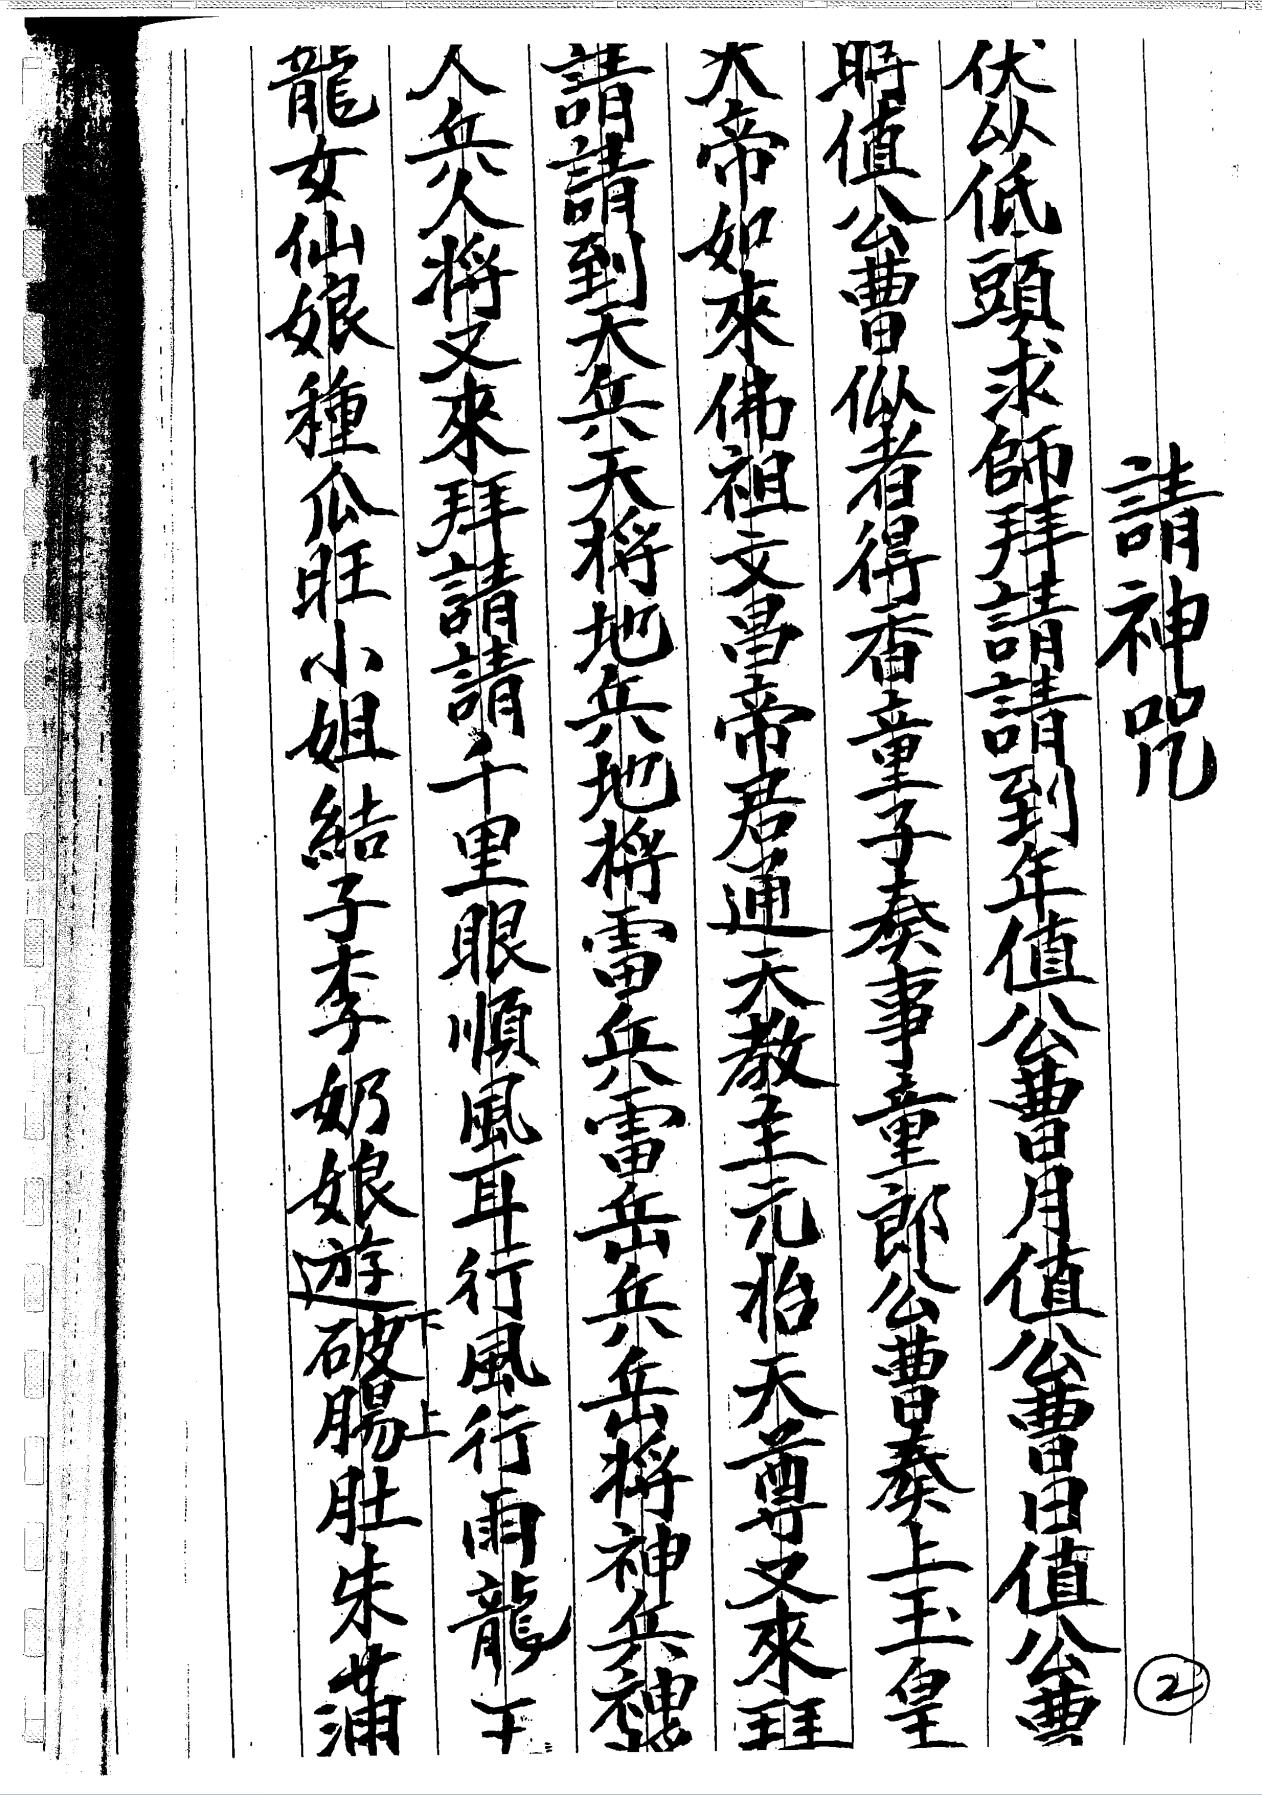 請神咒
伏以低頭求師拜請請到年值公曹月值公曹日值公曹
時值公曹似者得香童子奏事童郎公曹奏上玉皇
大帝如來佛祖文昌帝君通天教主元始天尊又來拜
請請到天兵天將地兵地將雷兵雷岳兵岳將神兵
人兵火將又來拜請請千里眼順風耳行風行雨龍下
龍女仙娘種瓜旺小姐結子李奶娘遊破腸肚朱蒲
下上
2